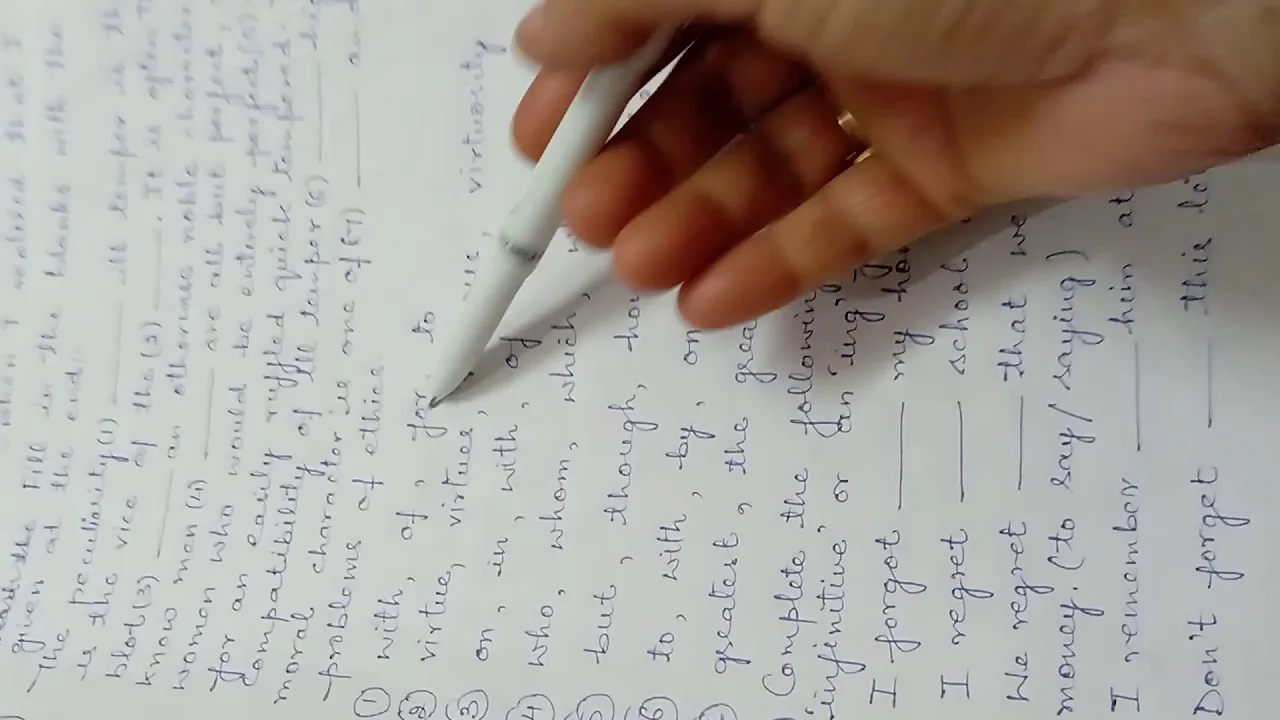 when I realised that I
Fill in the blanks with the
given at the end.
The peculiarity (1) ______ ill temper is th
is the vice of the (2) ______. It is often
blot (3) ______ an otherwise noble character
know men (4) ______ are all but perfect,
women who would be entirely perfect (5)
for an easily ruffled quick tempered
compatibility of ill temper (6) ______ hig
moral character is one of (7) ______ and
problems of ethics.
① with, of, for, to
② virtue, virtues, virtuosity
③ on, in, with, of
④ who, whom, which,
⑤ but, though, how
⑥ to, with, by, on
greatest, the grea
Complete the following
'infinitive' or an 'ing'
I forgot ______ my hom
I regret ______ school
We regret ______ that we
money. (to say/saying)
I remember ______ him at
Don't forget ______ this